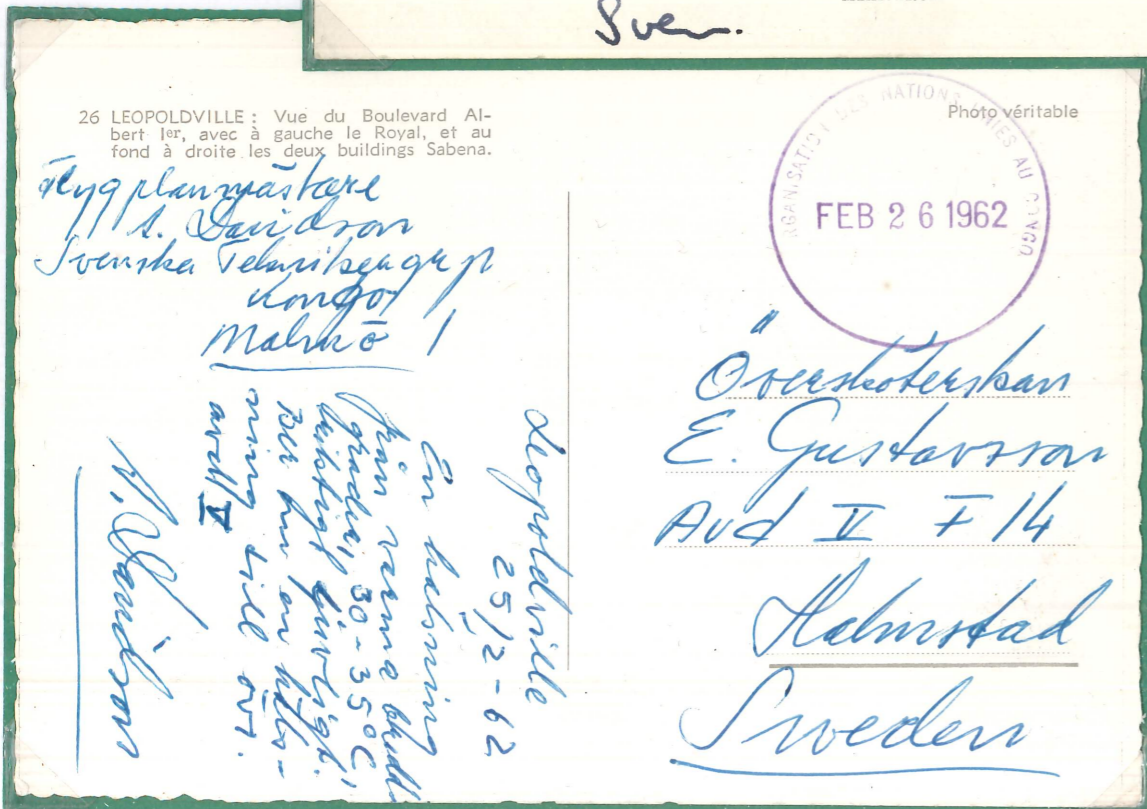 Sven.
26 LEOPOLDVILLE : Vue du Boulevard Al-
bert Ier, avec à gauche le Royal, et au
fond à droite les deux buildings Sabena.
Photo véritable
ORGANISATION DES NATIONS UNIES AU CONGO
FEB 26 1962
Flygplanmästare
A. Davidson
Svenska
Kongo
Malmö 1
Leopoldville
25/2-62
En hälsning
från varma
grader, 30-35°C,
Ber om en häls-
ning till övr.
avd V
A. Davidson
Översköterskan
E. Gustavsson
Avd V F 14
Halmstad
Sweden